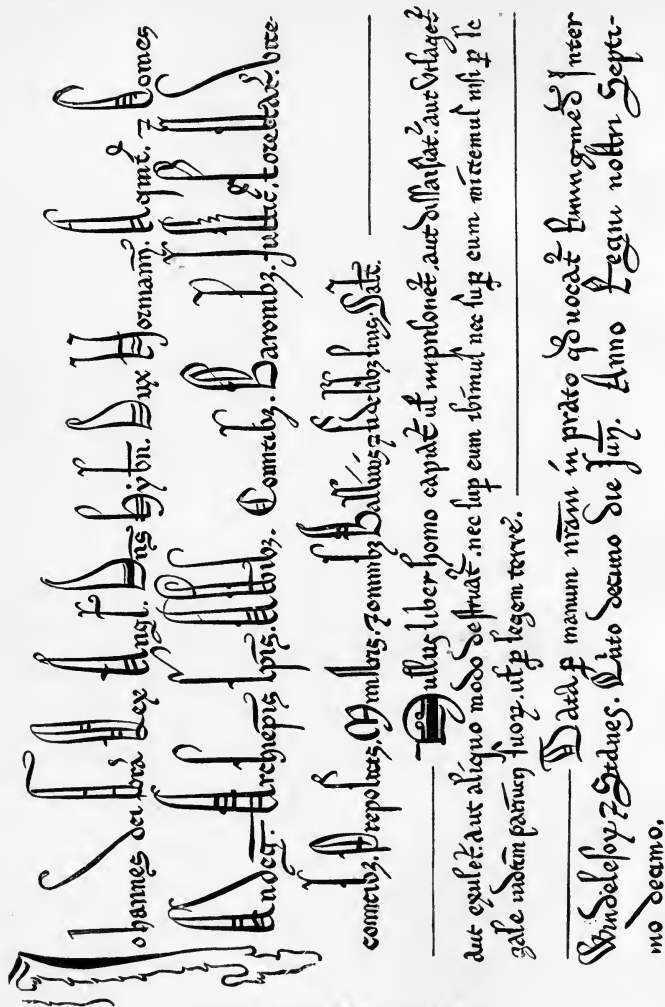 Johannes dei gr̄a Rex Angl. Dn̄s Hẏbn̄. Dux Normann̄. Aqnit̄. ⁊ Comes
Andeḡ. Archiep̄is Ep̄is. Abb̄ibꝫ. Comitibꝫ. Baronibꝫ. Justic̄. Forestar̄. vice-
comitibꝫ. Prepositis. Ministris. ⁊ omnibꝫ Ballivis ⁊ fidelibꝫ suis. Sal̄t.
Nullus liber homo capiat̄ ul̄ inp̄isonet̄, aut dissaisiat̄. aut Utlaget̄
aut exulet̄. aut aliquo modo destruat̄. nec sup̱ eum ibimus nec sup̱ eum mittemus nisi p̱ le
gale iudiciū parium suoꝝ. ul̄ p̱ legem terre.
Data p̱ manum nr̄am in prato qd̄ uocat̄ Runingmed̄ Inter
Windelesoꝝ ⁊ Stanes. Quinto decimo die Jun̄. Anno Regni nostri Septi-
mo decimo.